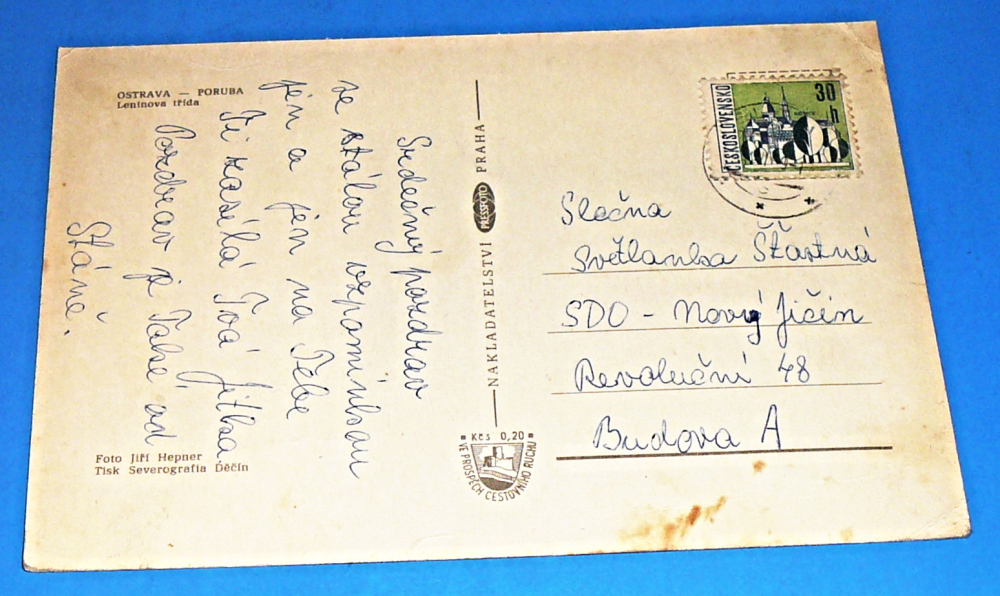 OSTRAVA — PORUBA
Leninova třída
Srdečný pozdrav
se stálou vzpomínkou
jen a jen na Tebe
Ti zasílá Tvá Jitka
Pozdrav je Také od
Stáně.
Foto Jiří Hepner
Tisk Severografia Děčín
NAKLADATELSTVÍ PRESSFOTO PRAHA
Kčs 0,20
VE PROSPĚCH CESTOVNÍHO RUCHU
ČESKOSLOVENSKO
30 h
Slečna
Světlanka Šťastná
SDO - Nový Jičín
Revoluční 48
Budova A